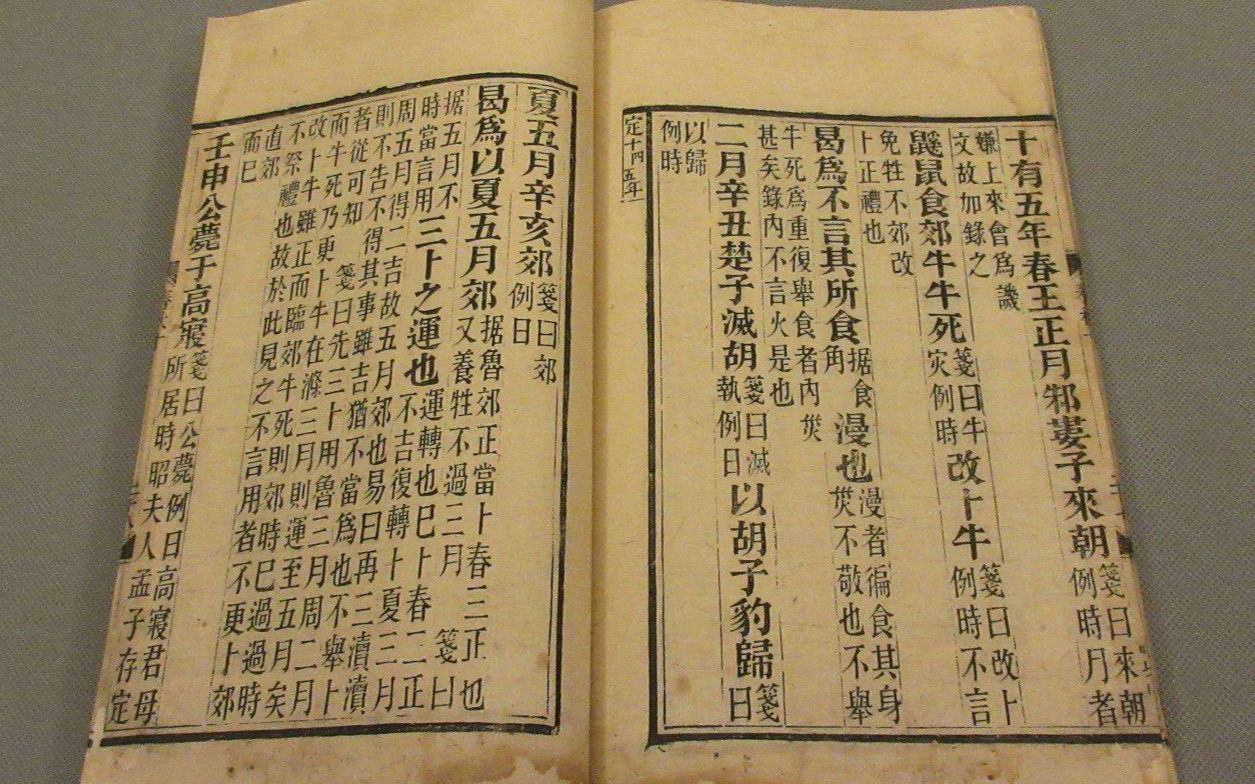 十有五年春王正月邾婁子來朝箋曰來朝例時月者
嫌上來會為譏
文故加錄之
鼷鼠食郊牛牛死箋曰牛灾例時改卜牛箋曰改卜例時不言
免牲不郊改
卜正禮也
曷爲不言其所食据食角漫也漫者徧食其身災不敬也不舉
牛死爲重復舉食者內災
甚矣錄內不言火是也
二月辛丑楚子滅胡箋曰滅執例日以胡子豹歸箋曰
以歸
例時
定十四五年
夏五月辛亥郊箋曰郊例日
曷爲以夏五月郊据魯郊正當卜春三正也又養牲不過三月箋曰
据五月不時當言用三卜之運也運轉也已卜春二正不吉復轉卜夏三月
周五月得二吉故五月郊也易曰再三瀆瀆
則不告不得其事雖吉猶不當爲也不舉卜
者從可知箋曰先三卜用魯三月周二月
而牛死乃更卜牛在滌三月則運至五月矣
改卜牛雖正而臨郊牛死則郊時已過過時
不祭禮也故於此見之不言用者不更卜郊
直郊
而已
壬申公薨于高寢箋曰公薨例日高寢君母所居時昭夫人孟子存定